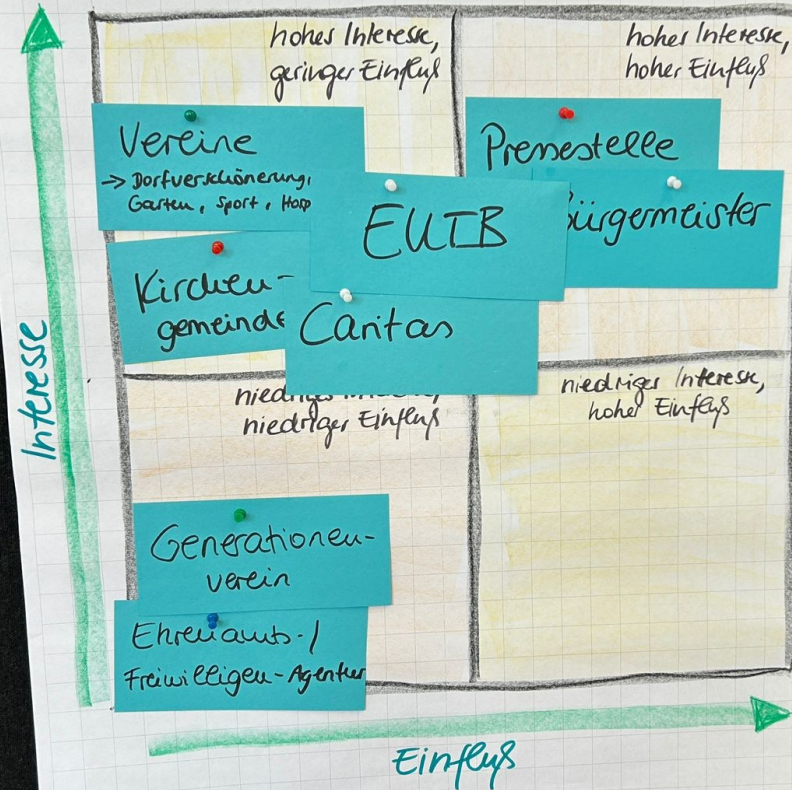 hohes Interesse,
geringer Einfluß
hohes Interesse,
hoher Einfluß
Vereine
→ Dorfverschönerung,
Garten, Sport, Hosp
Pressestelle
EUTB
Bürgermeister
Kirchen-
gemeinde
Caritas
niedriges
niedriger Einfluß
niedriges Interesse,
hoher Einfluß
Generationen-
verein
Ehrenamts-/
Freiwilligen-Agentur
Interesse
Einfluß